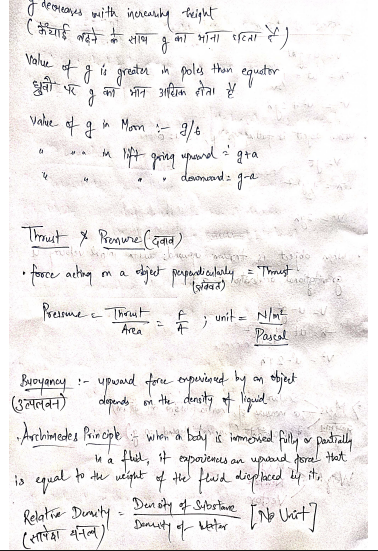 g decreases with increasing height
(ऊँचाई बढ़ने के साथ g का मान घटता है)
Value of g is greater in poles than equator
ध्रुवों पर g का मान अधिक होता है
Value of g in Moon :- g/6
" " " in lift going upward = g+a
" " " " downward = g-a
Thrust & Pressure (दबाव)
• force acting on a object perpendicularly = Thrust
Pressure = Thrust/Area = F/A ; unit = N/m²
Pascal
Buoyancy :- upward force experienced by an object
(उत्प्लावन) depends on the density of liquid
• Archimedes Principle :- when a body is immersed fully or partially
in a fluid, it experiences an upward force that
is equal to the weight of the fluid displaced by it.
Relative Density = Density of Substance/Density of Water [No Unit]
(सापेक्ष घनत्व)